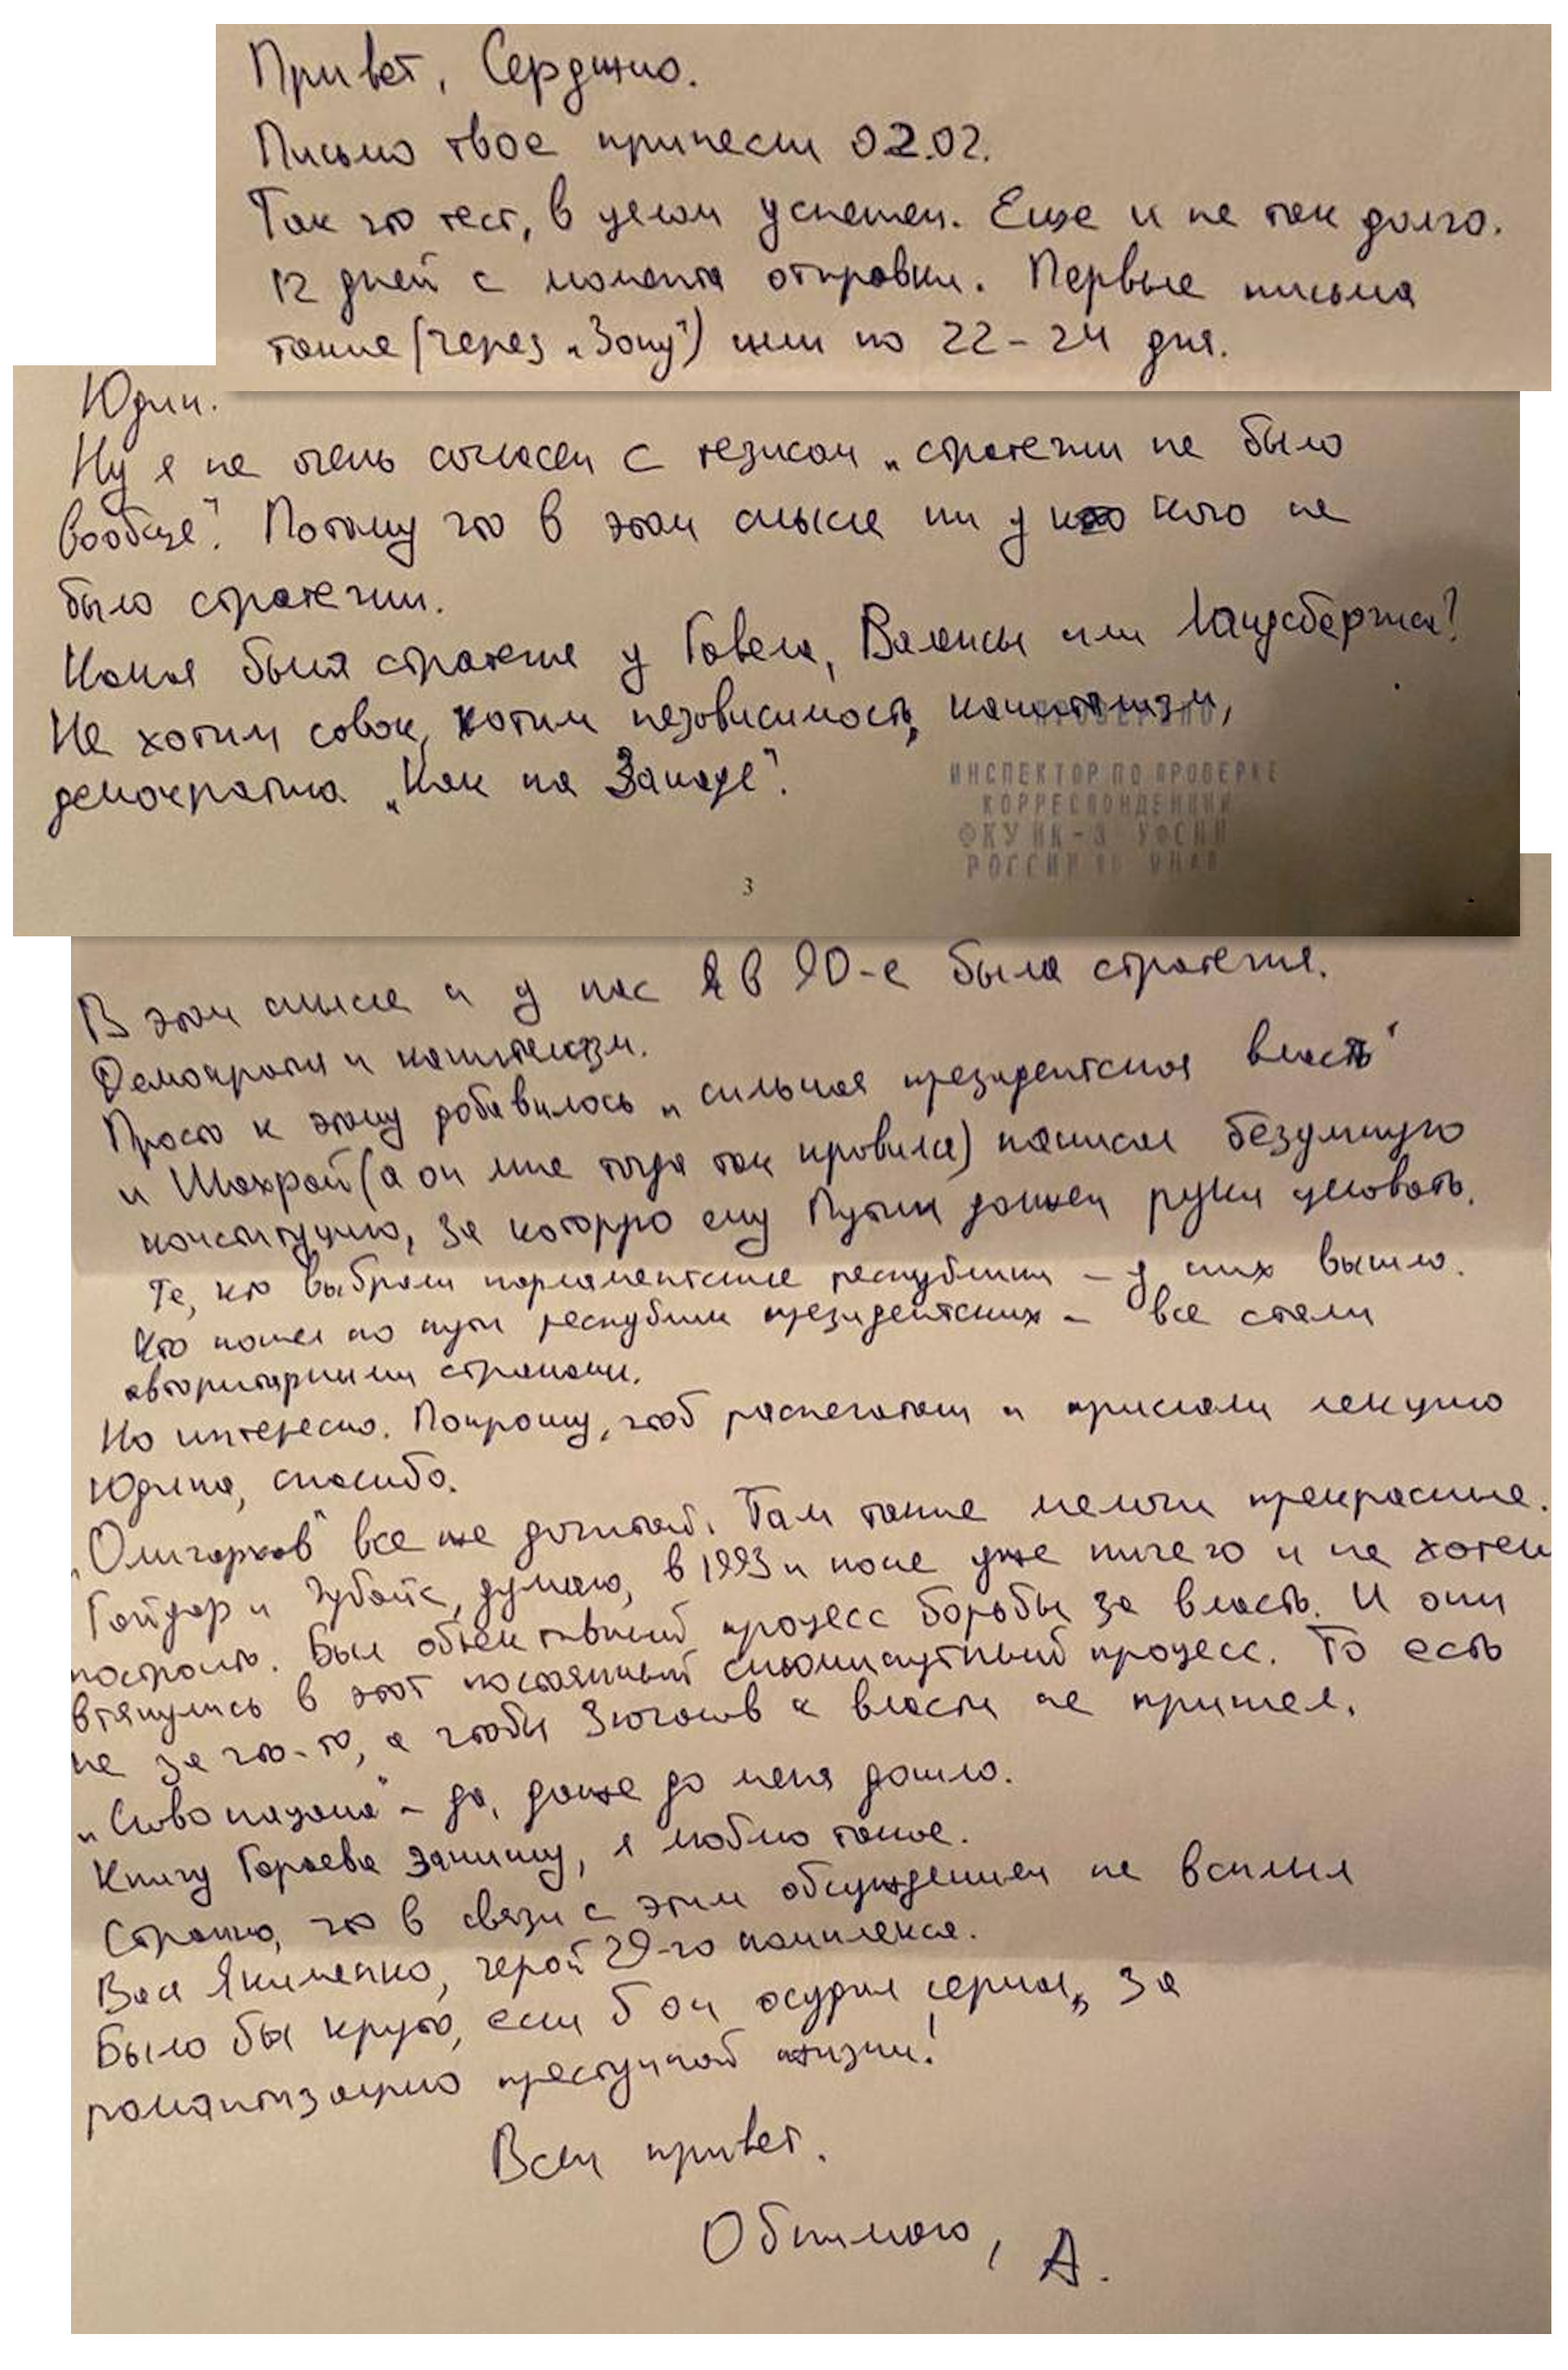 Привет, Серджио.
Письмо твое принесли 02.02.
Так что тест, в целом успешен. Еще и не так долго.
12 дней с момента отправки. Первые письма
такие (через „Зону") шли по 22-24 дня.
Юдин.
Ну я не очень согласен с тезисом „стратегии не было
вообще". Потому что в этом смысле ни у кого не
было стратегии.
Какая была стратегия у Гавела, Валенсы или Ландсбергиса?
Не хотим совок, хотим независимость, капитализм,
демократия „Как на Западе".
ИНСПЕКТОР ПО ПРОВЕРКЕ
КОРРЕСПОНДЕНЦИИ
ФКУ ИК-3 УФСИН
РОССИИ ПО ЯНАО
3
В этом смысле и у нас в 90-е была стратегия.
Демократия и капитализм.
Просто к этому добавилось „сильная президентская власть"
и Шахрай (а он мне тогда так нравился) написал безумную
конституцию, за которую ему Путин должен руки целовать.
Те, кто выбрали парламентские республики – у них вышло.
Кто пошел по пути республик президентских – все стали
авторитарными странами.
Но интересно. Попрошу, чтоб распечатали и прислали лекцию
Юдина, спасибо.
„Олигархов" все же дочитай. Там такие мелочи прекрасные.
Гайдар и Чубайс, думаю, в 1993 и позже уже ничего и не хотели
построить. Был объективный процесс борьбы за власть. И они
втянулись в этот постоянный сиюминутный процесс. То есть
не за что-то, а чтобы Зюганов к власти не пришел.
„Слово пацана" – да, даже до меня дошло.
Книгу Гараева запишу, я люблю такое.
Странно, что в связи с этим обсуждением не всплыл
Вася Якименко, герой 29-го комплекса.
Было бы круто, если б он осудил сериал „за
романтизацию преступной жизни!
Всем привет.
Обнимаю, А.